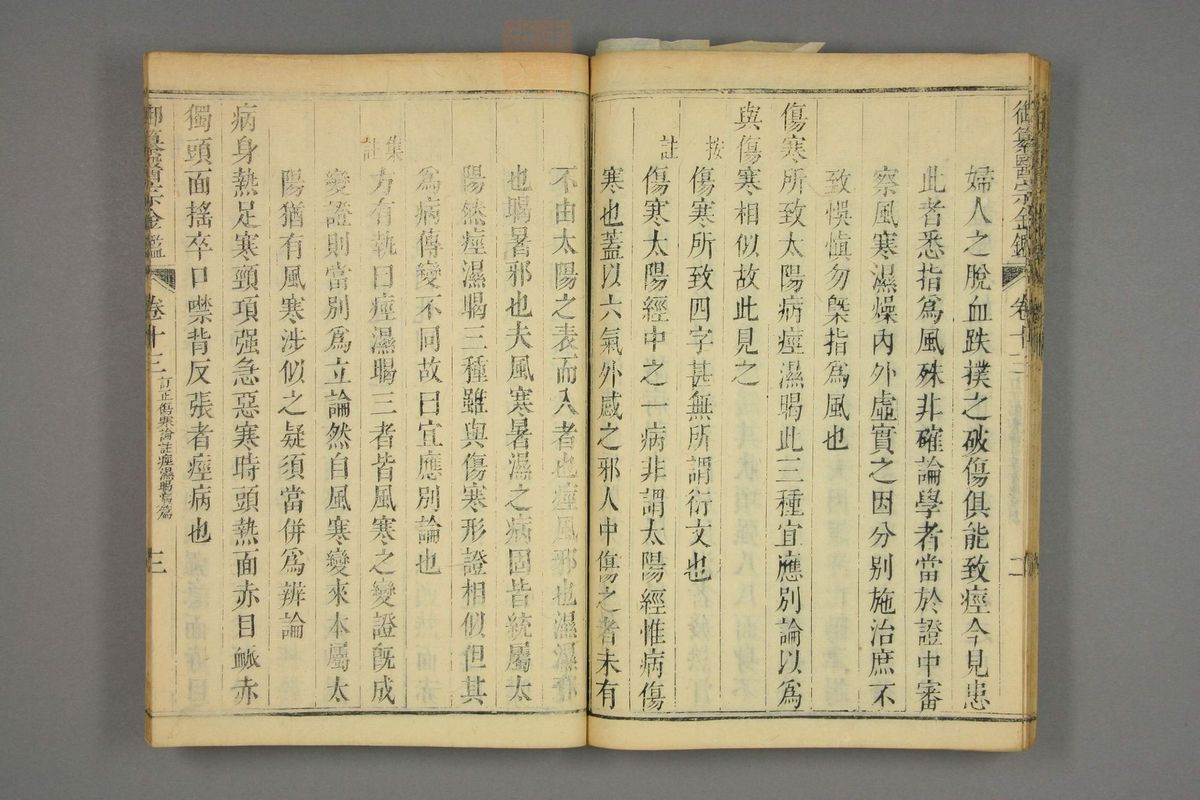 御纂醫宗金鑑 卷十三 二
婦人之脫血跌撲之破傷俱能致痙今見患
此者悉指爲風殊非確論學者當於證中審
察風寒濕燥內外虛實之因分别施治庶不
致悞慎勿槩指爲風也
傷寒所致太陽病痙濕暍此三種宜應別論以爲
與傷寒相似故此見之
按
傷寒所致四字甚無所謂衍文也
註
傷寒太陽經中之一病非謂太陽經惟病傷
寒也蓋以六氣外感之邪人中傷之者未有
不由太陽之表而入者也痙風邪也濕濕邪
也暍暑邪也夫風寒暑濕之病固皆統屬太
陽然痙濕暍三種雖與傷寒形證相似但其
爲病傳變不同故曰宜應別論也
集註
方有執曰痙濕暍三者皆風寒之變證旣成
變證則當別爲立論然自風寒變來本屬太
陽猶有風寒涉似之疑須當併爲辨論
病身熱足寒頸項强急惡寒時頭熱面赤目䘑赤
獨頭面搖卒口噤背反張者痙病也
御纂醫宗金鑑 卷十三 訂正傷寒論註痙濕暍篇 三